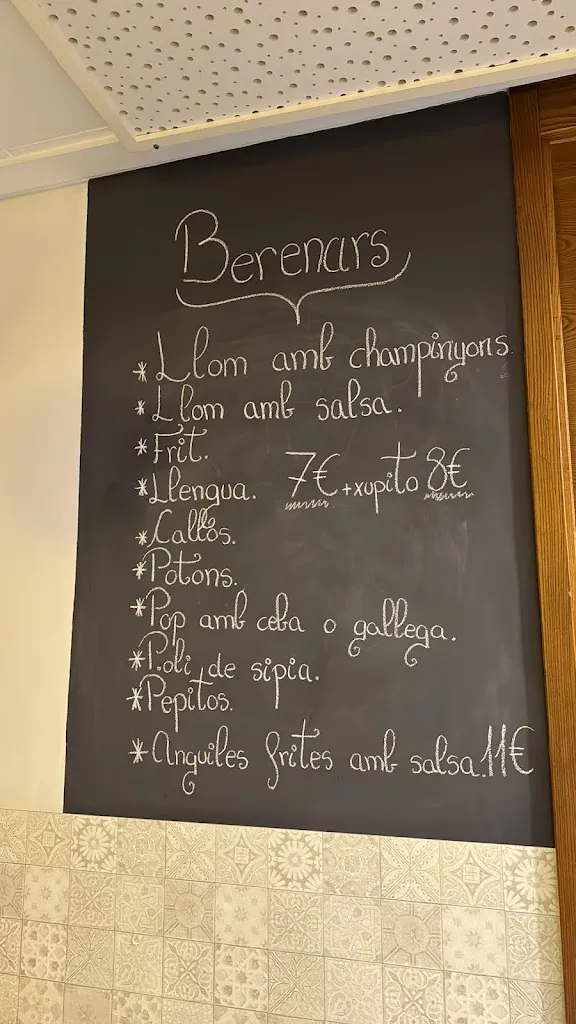 Berenars
* Llom amb champinyons.
* Llom amb salsa.
* Frit.
* Llengua. 7€ + xupito 8€
* Callos.
* Potons.
* Pop amb ceba o gallega.
* P.oli de sipia.
* Pepitos.
* Anguiles frites amb salsa. 11€